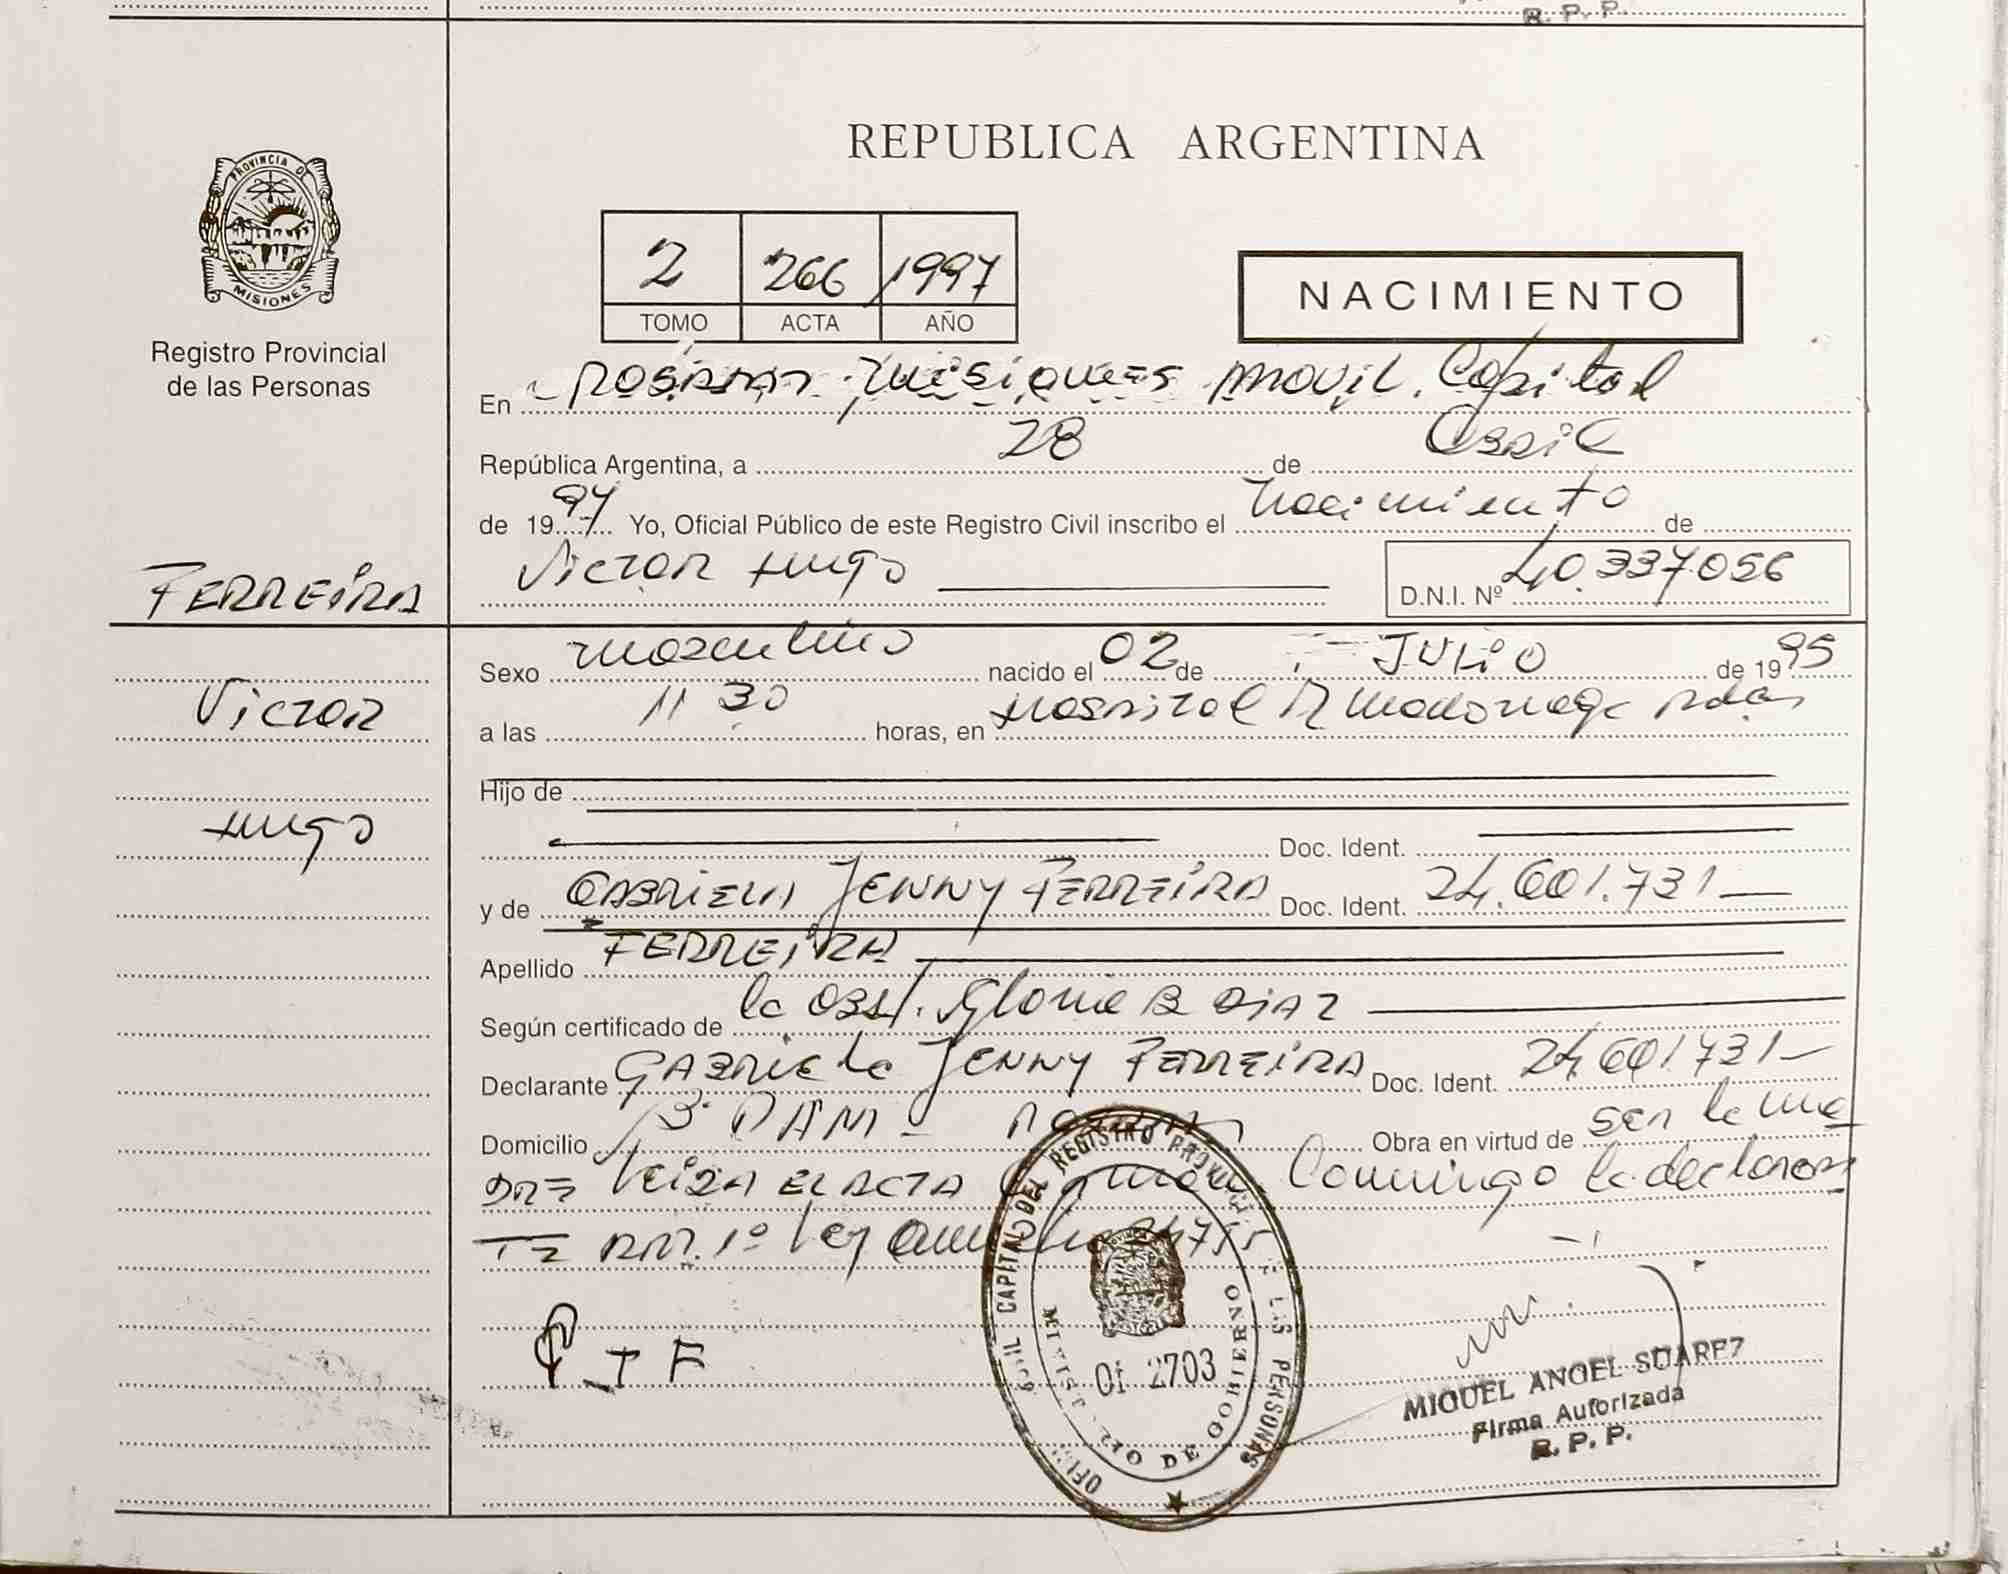 R. P. P.
REPUBLICA ARGENTINA
PROVINCIA DE
MISIONES
Registro Provincial
de las Personas
2 266 1997
TOMO ACTA AÑO
NACIMIENTO
En Posadas Misiones Movil Capital
República Argentina, a 28 de Abril
de 1997 Yo, Oficial Público de este Registro Civil inscribo el Nacimiento de
Victor Hugo D.N.I. Nº 40.337.056
FERREIRA
Victor
Hugo
Sexo masculino nacido el 02 de JULIO de 1995
a las 11 30 horas, en Hospital R Madariaga Pdas
Hijo de
Doc. Ident.
y de GABRIELA JENNY FERREIRA Doc. Ident. 24.601.731
Apellido FERREIRA
Según certificado de la Obst. Gloria B Diaz
Declarante GABRIELA JENNY FERREIRA Doc. Ident. 24.601.731
Domicilio Obra en virtud de ser la ma
dre EL ACTA la declaran
te 1º Ley
G J F
OFICI CAPITAL DEL REGISTRO PROVINCIAL DE LAS PERSONAS
MINISTERIO DE GOBIERNO
01 2703
MIGUEL ANGEL SUAREZ
Firma Autorizada
R. P. P.